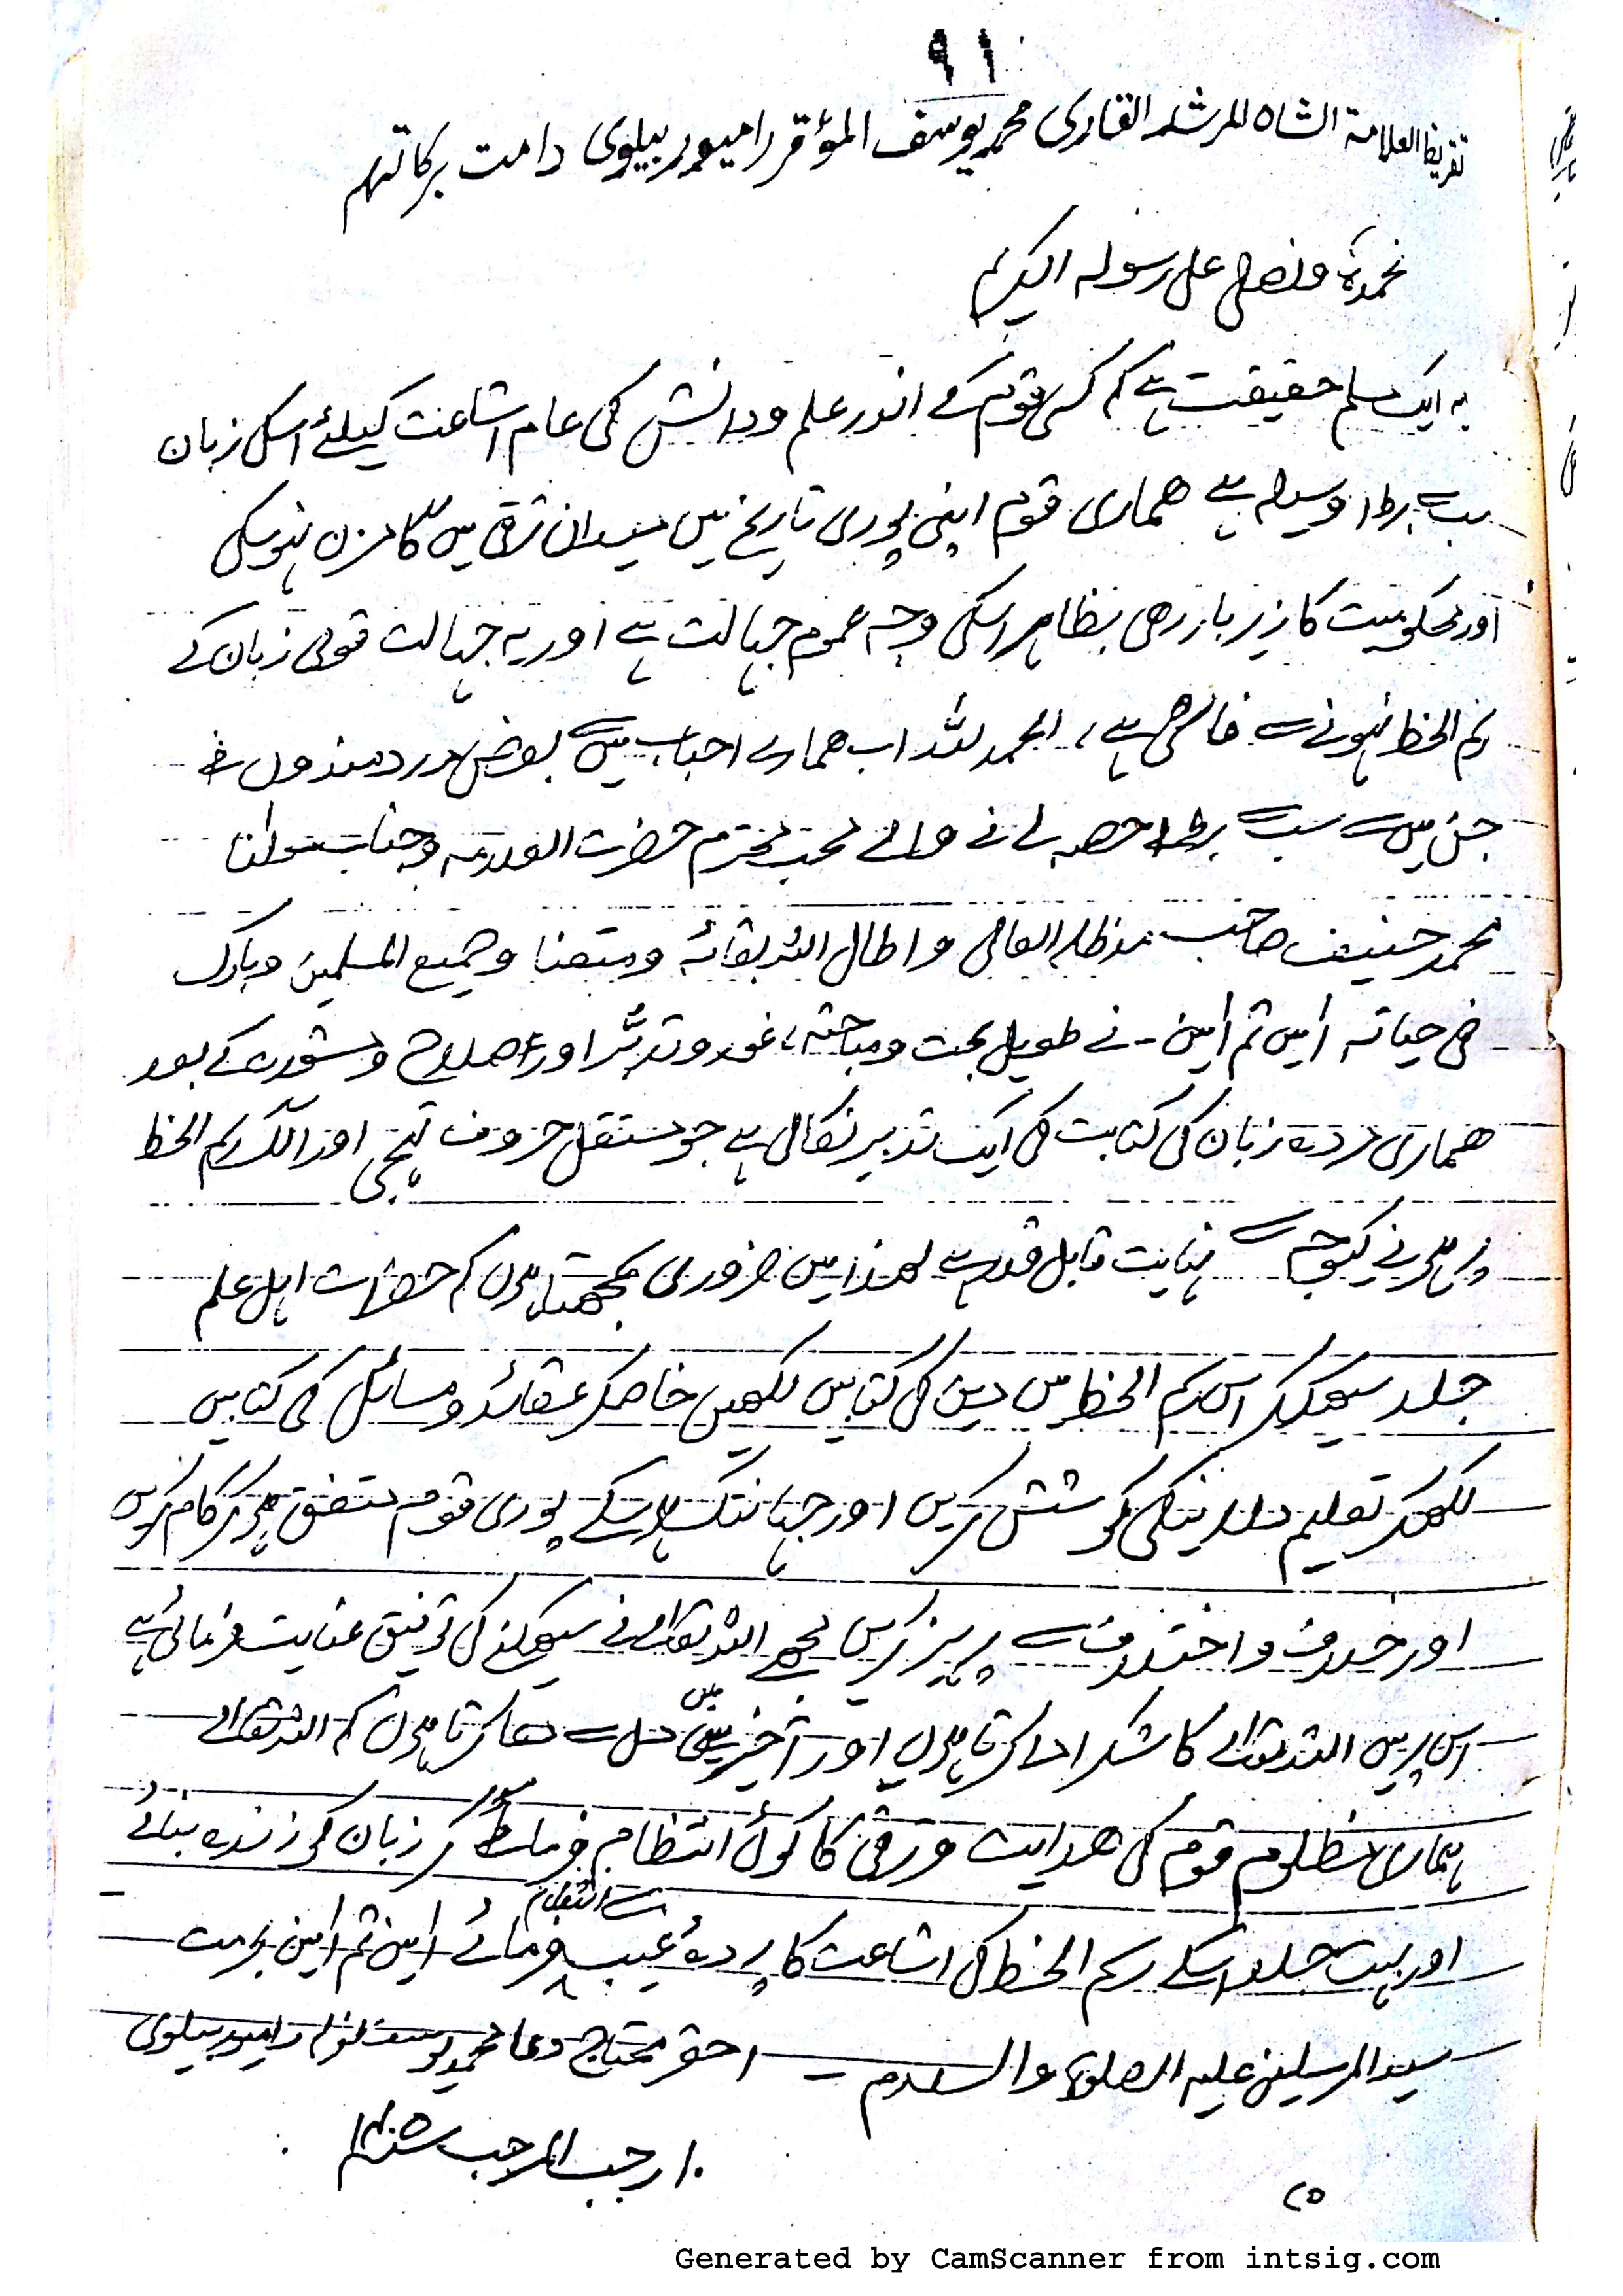 ٩١
تقریظ العلامة الشاه المرشد القاری محمد یوسف المؤقر رامیور بیلوی دامت برکاتهم
نحمدہٗ ونصلی علی رسوله الکریم
یہ ایک مسلم حقیقت ہے کہ کسی قوم کے اندر علم ودانش کی عام اشاعت کیلئے اسکی زبان
سب سے بڑا وسیلہ ہے ھماری قوم اپنی پوری تاریخ میں میدان ترقی میں گامزن نہوسکی
اور محکومیت کا زیر بار رھی بظاہر اسکی وجہ عموم جہالت ہے اور یہ جہالت قومی زبان کے
رسم الخط نہونے سے خاصی ہے، الحمد للہ اب ھمارے احباب میں سے بعض دردمندوں نے
جن میں سے سب سے بڑا حصہ لے نے والے محب محترم حضرت العلامہ وجناب مولنا
محمد حنیف صاحب مدظلہ العالی واطال اللہ بقائہ ومتعنا وجمیع المسلمین وبارک
فی حیاتہ امین ثم امین - نے طویل بحث ومباحثہ، غور وتدبّر اور اصلاح ومشورہ کے بعد
ھماری مردہ زبان کی کتابت کی ایک تدبیر نکالی ہے جو مستقل حروف تہجی اور الگ رسم الخط
پر ہونے کیوجہ سے نہایت قابل قدر ہے لھذا میں ضروری سمجھتا ہوں کہ حضرات اہل علم
جلد سیھکر اس رسم الخط میں دین کی کتابیں لکھیں خاصکر عقائد ومسائل کی کتابیں
لکھکر تعلیم دلا نیکی کوشش کریں اور جہانتک ہوسکے پوری قوم متفق ہوکر کام کریں
اور خلاف واختلاف سے پرہیز کریں مجھے اللہ تعالے نے سیھکنے کی توفیق عنایت فرمائی ہے
اس پر میں اللہ تعالے کا شکر ادا کرتا ہوں اور آخر میں دل سے دعا کرتا ہوں کہ اللہ تعالے
ہماری مظلوم قوم کی ھدایت وترقی کا کوئی انتظام فرما کر زبان کو زندہ بنائے
اور بہت جلد اسکے رسم الخط کی اشاعت کا پردۂ غیب سے انتظام فرمائے امین ثم امین بحرمت
سید المرسلین علیہ الصلوة والسلام - احقر محتاج دعا محمد یوسف رامیور بیلوی
١٠ رجب المرجب
٢٥
Generated by CamScanner from intsig.com